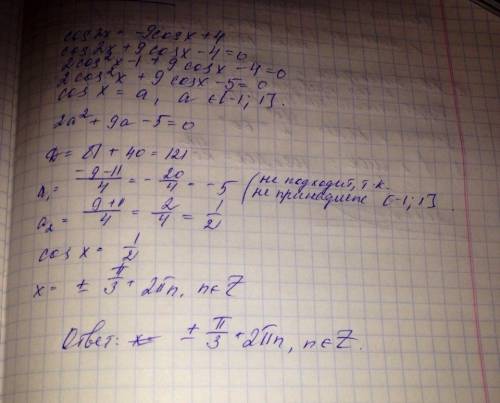 cos2x = -9cosx+4
cos2x + 9cosx - 4 = 0
2cos²x - 1 + 9cosx - 4 = 0
2cos²x + 9cosx - 5 = 0
cosx = a, a ∈ [-1; 1].
2a² + 9a - 5 = 0
D = 81 + 40 = 121
a₁ = (-9-11)/4 = -20/4 = -5 (не подходит, т.к.
не принадлеже [-1; 1].
a₂ = (9+11)/4 = 2/4 = 1/2
cosx = 1/2
x = ± π/3 + 2πn, n∈Z
Ответ: ± π/3 + 2πn, n∈Z.